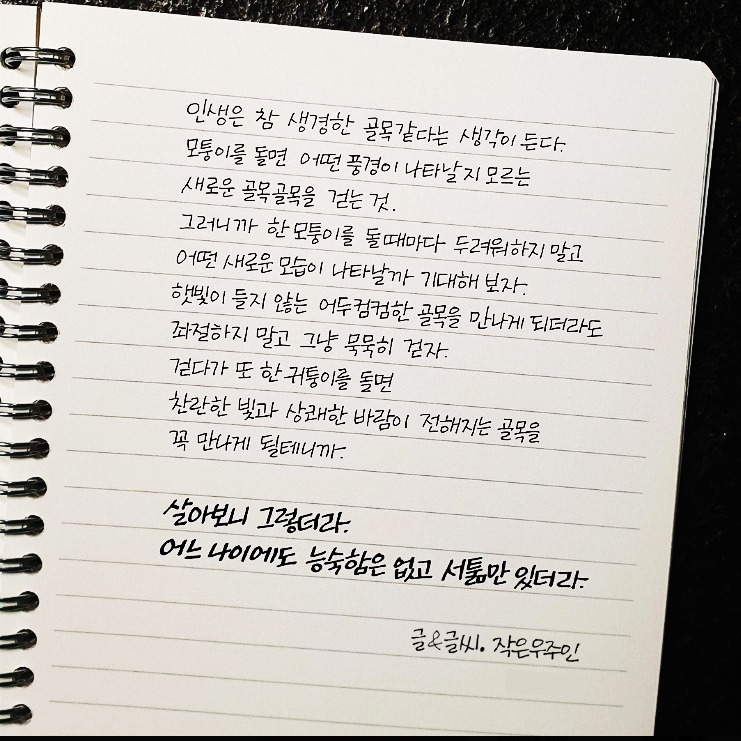 인생은 참 생경한 골목같다는 생각이 든다.
모퉁이를 돌면 어떤 풍경이 나타날지 모르는
새로운 골목골목을 걷는 것.
그러니까 한 모퉁이를 돌때마다 두려워하지 말고
어떤 새로운 모습이 나타날까 기대해 보자.
햇빛이 들지 않는 어두컴컴한 골목을 만나게 되더라도
좌절하지 말고 그냥 묵묵히 걷자.
걷다가 또 한 귀퉁이를 돌면
찬란한 빛과 상쾌한 바람이 전해지는 골목을
꼭 만나게 될테니까.
살아보니 그렇더라.
어느 나이에도 능숙함은 없고 서툶만 있더라.
글&글씨. 작은우주인